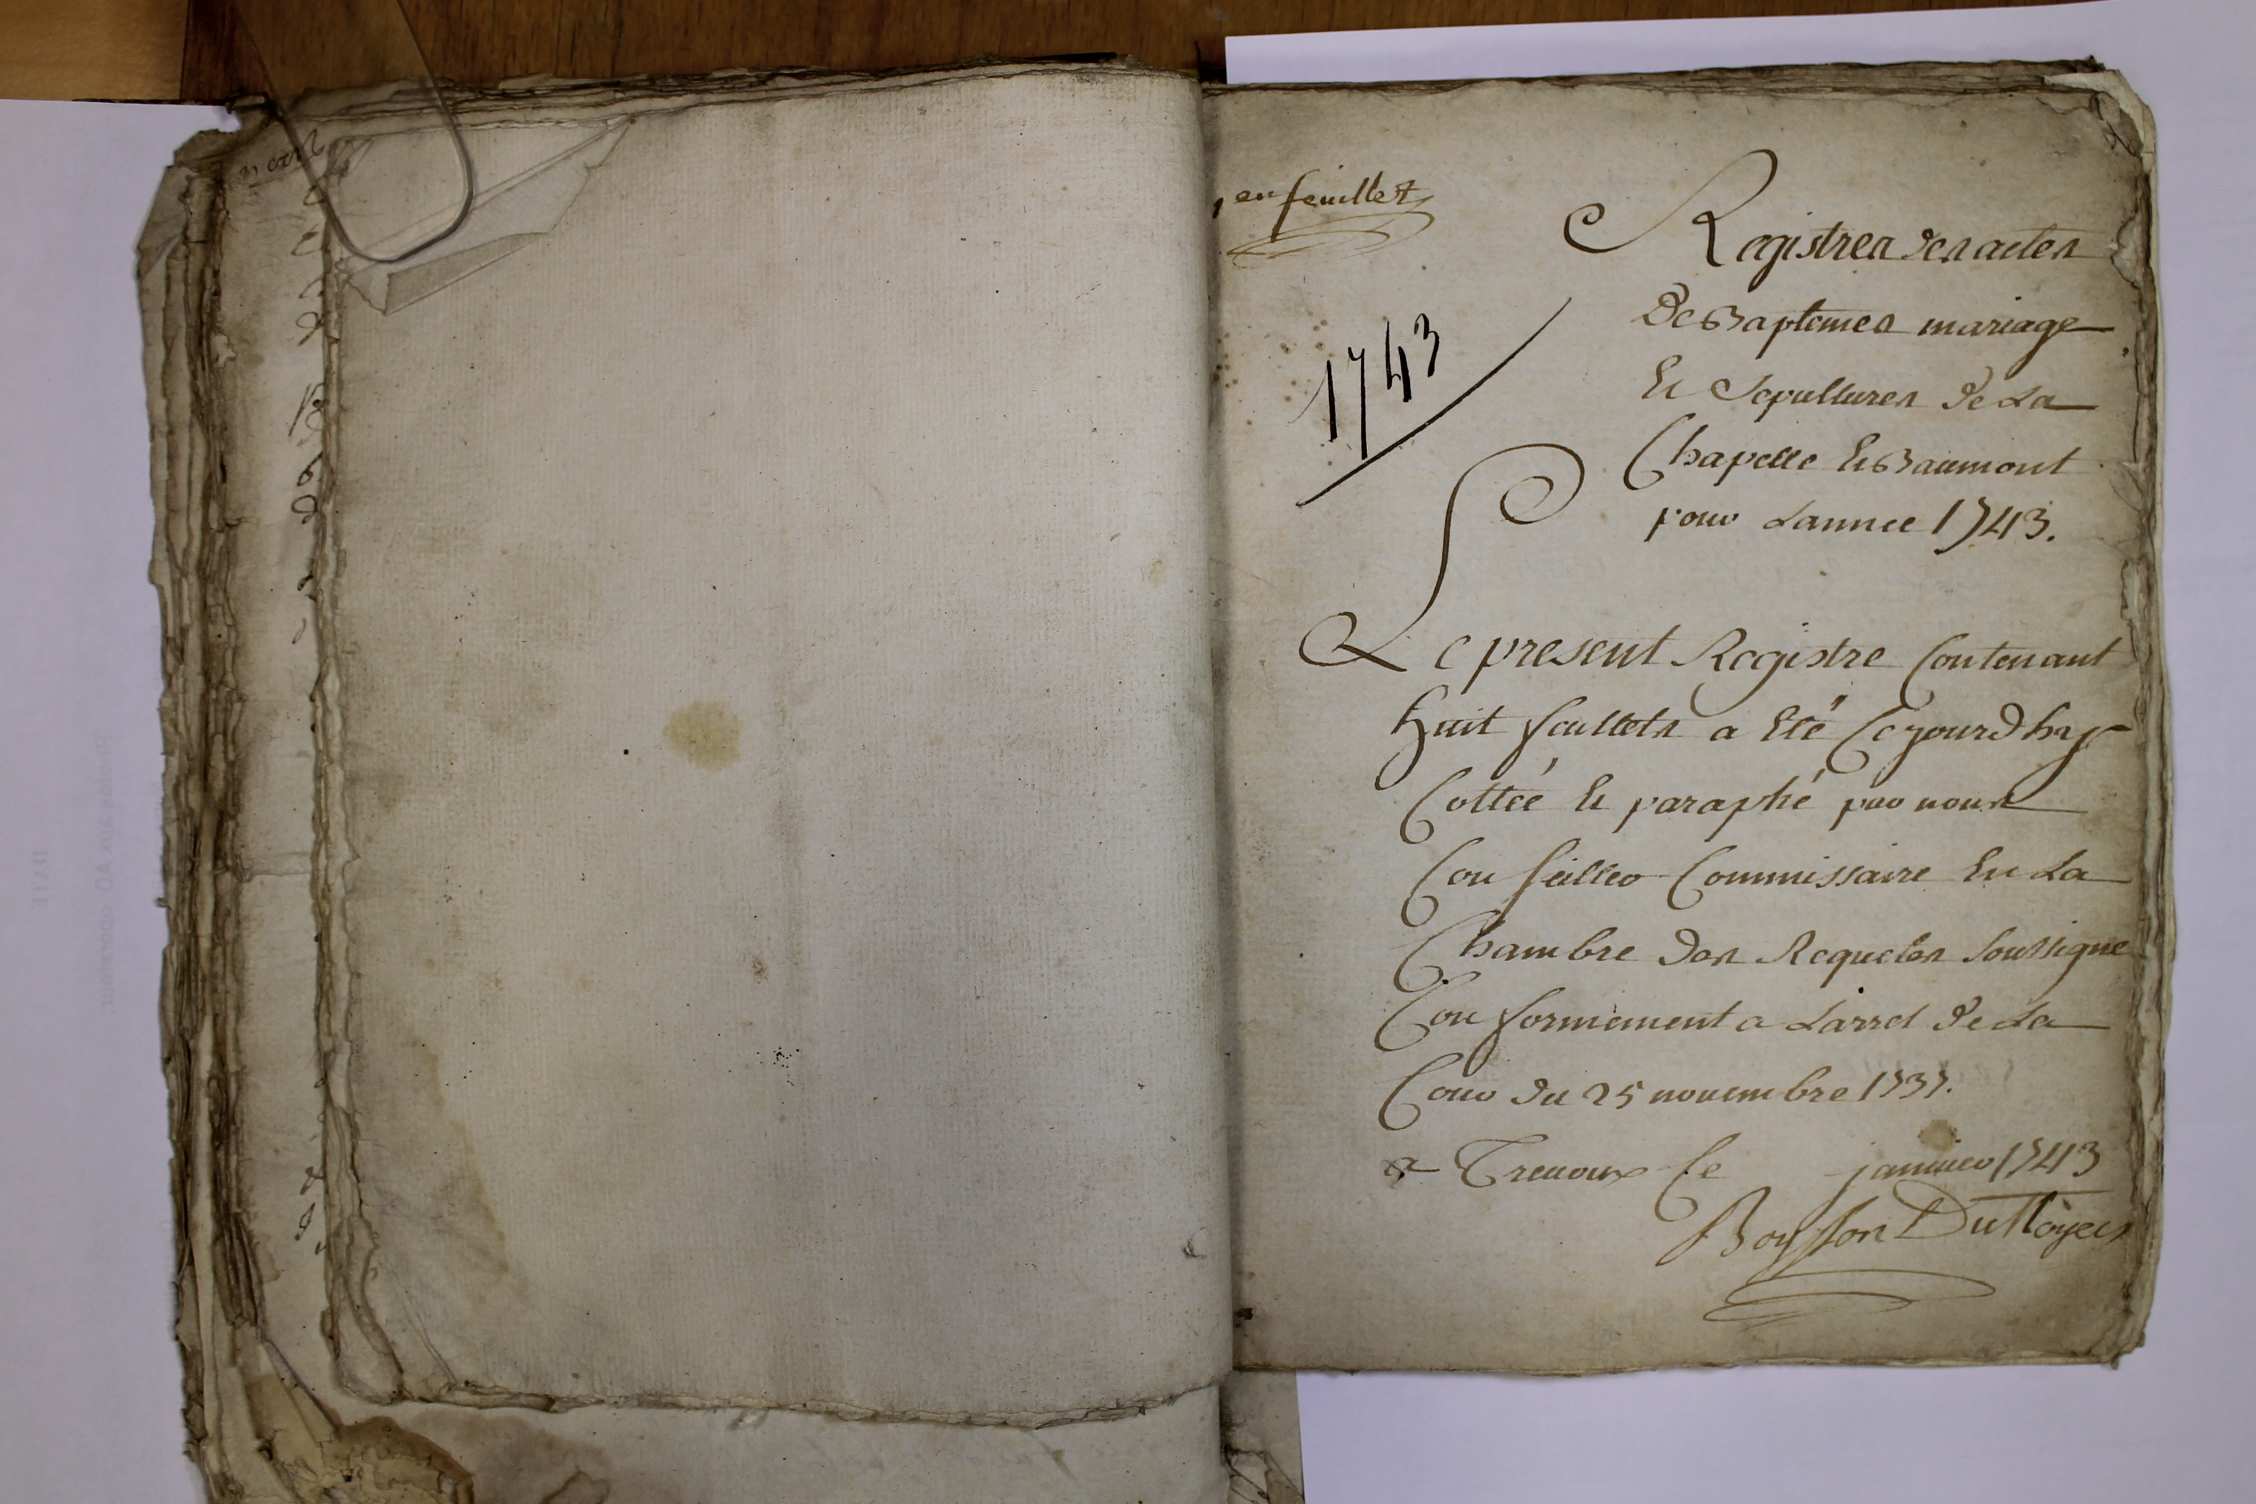 1er feuillet
1743
Registres des actes
De Baptemes mariage
Et Sepultures de La
Chapelle Et Baumont
pour Lannee 1743.
Le present Registre Contenant
huit feuillets a Eté Cejourdhuy
Cottéé Et paraphé par nous
Conseiller Commissaire En La
Chambre des Requetes soussigné
Conformement a Larret de La
Cour du 25 novembre 1737.
a Trevoux le janvier 1743